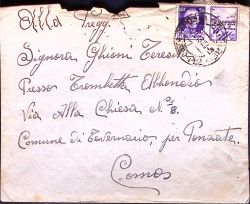 Alla Pregg.
Signora Ghioni Teresa
Presso Trombetta Abbondio
Via Alla Chiesa N° 8.
Comune di Tavernerio, per Ponzate.
Como